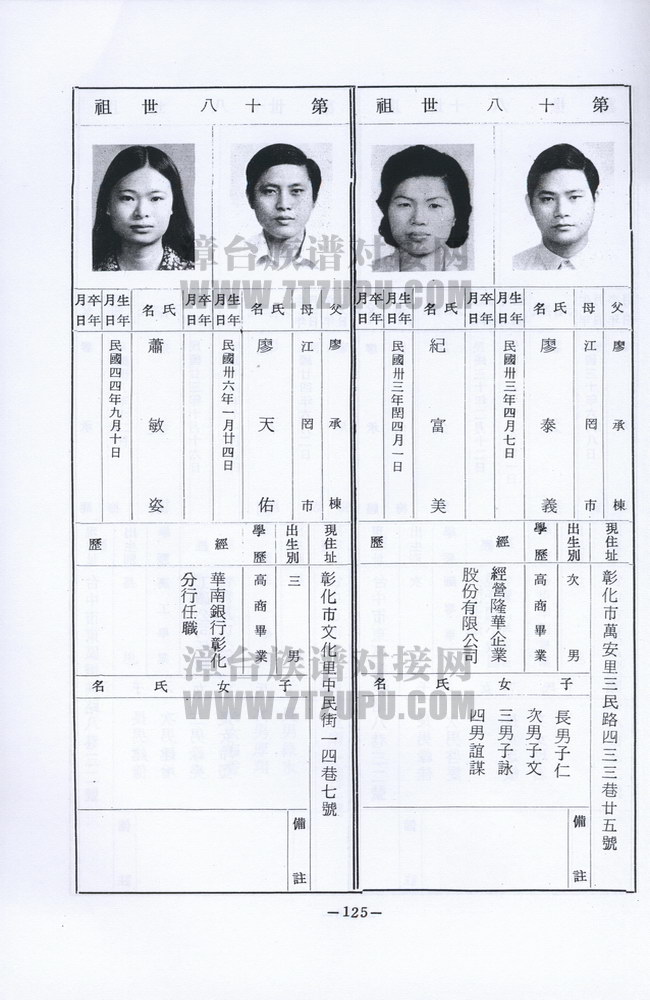 第十八世祖
父 廖承棟
母 江罔市
氏名 廖泰義
生年月日 民國卅三年四月七日
卒年月日
氏名 紀富美
生年月日 民國卅三年閏四月一日
卒年月日
現住址 彰化市萬安里三民路四三三巷廿五號
出生別 次男
學歷 高商畢業
經歷 經營隆華企業
股份有限公司
子女氏名
長男子仁
次男子文
三男子詠
四男誼謀
備註
第十八世祖
父 廖承棟
母 江罔市
氏名 廖天佑
生年月日 民國卅六年一月廿四日
卒年月日
氏名 蕭敏姿
生年月日 民國四四年九月十日
卒年月日
現住址 彰化市文化里中民街一四巷七號
出生別 三男
學歷 高商畢業
經歷 華南銀行彰化
分行任職
子女氏名
備註
—125—
漳台族谱对接网
WWW.ZTZUPU.COM
漳台族谱对接网
WWW.ZTZUPU.COM